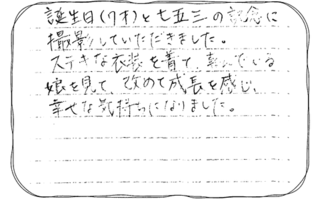 誕生日(7才)と七五三の記念に
撮影していただきました。
ステキな衣装を着て、喜んでいる
娘を見て、改めて成長を感じ、
幸せな気持ちになりました。